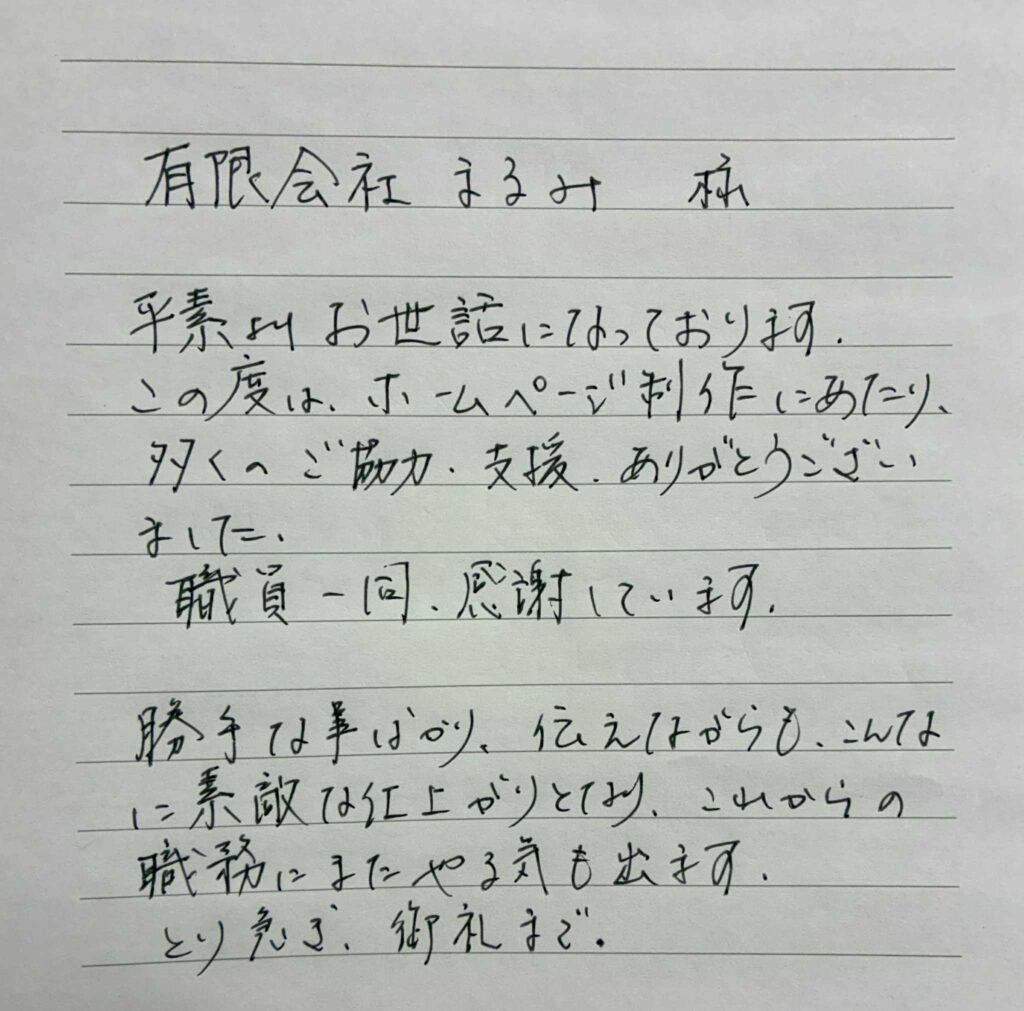 有限会社 まるみ 様
平素よりお世話になっております.
この度は、ホームページ制作にあたり、
多くのご協力.支援.ありがとうござい
ました、
職員一同、感謝しています.
勝手な事ばかり、伝えながらも、こんな
に素敵な仕上がりとなり、これからの
職務にまたやる気も出ます.
とり急ぎ、御礼まで.